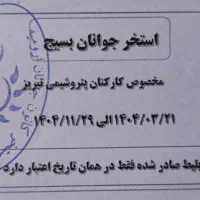 استخر جوانان بسیج
مخصوص کارکنان پتروشیمی تبریز
۱۴۰۴/۰۳/۲۱ الی ۱۴۰۴/۱۱/۲۹
بلیط صادر شده فقط در همان تاریخ اعتبار دارد